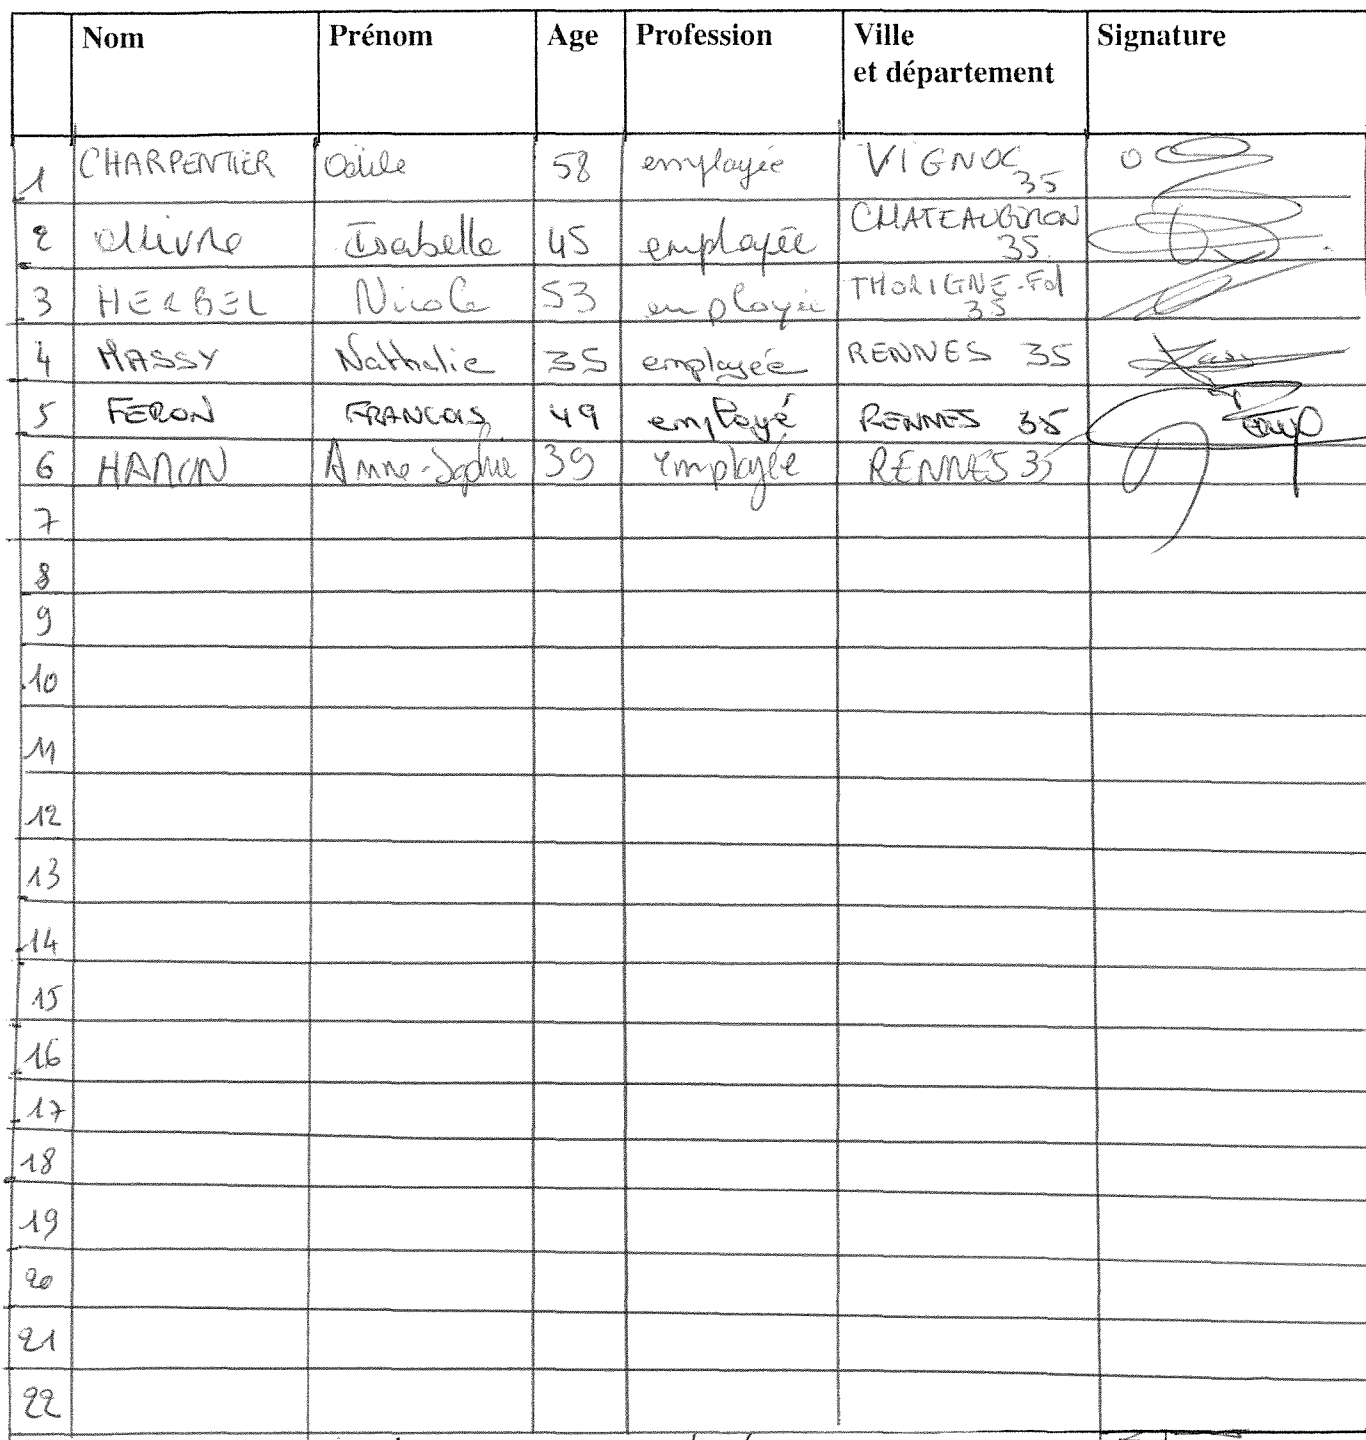 Nom Prénom Age Profession Ville et département Signature
1 CHARPENTIER Odile 58 employée VIGNOC 35
2 Isabelle 45 employée CHATEAUGIRON 35
3 HERBEL Nicole 53 employée THORIGNE-Fol 35
4 MASSY Nathalie 35 employée RENNES 35
5 FERON FRANCOIS 49 employé RENNES 35
6 HAMON Anne-Sophie 39 employée RENNES 35
7
8
9
10
11
12
13
14
15
16
17
18
19
20
21
22